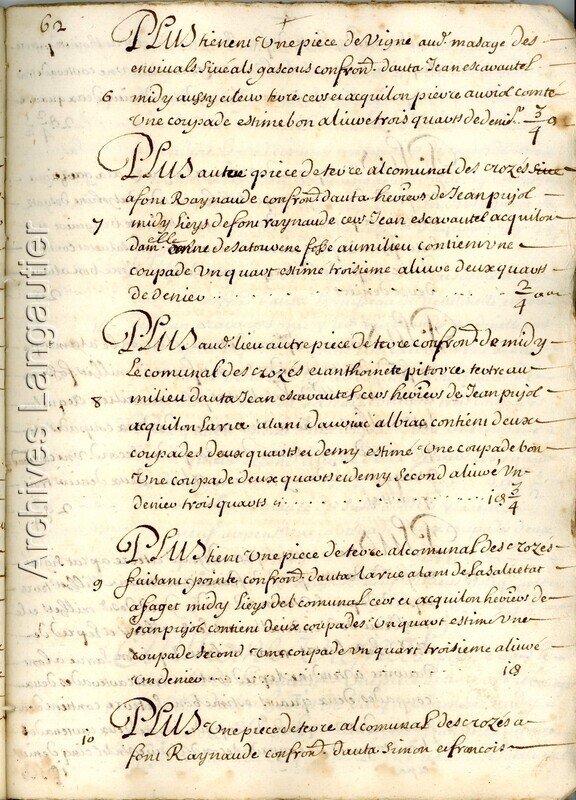 62
PLUS tienent Une piece de Vigne aud. masage des
envivals sive als gascous confron. dauta Jean escavautel
6 midy aussy et leur terre cers et aquilon pierre auriol conte
Une coupade estime bon aliure trois quarts de denier 3/4
PLUS autre piece de terre al comunal des crozés
a font Raynaude confron. dauta heures de Jean pujol
7 midy lieys de font raynaude cers Jean escavautel acquilon
dam.elle fosse au milieu contient Une
coupade Un quart estime troisieme aliure deux quarts
de denier . . . . . . . . 2/4
PLUS aud. lieu autre piece de terre confron. de midy
Le comunal des crozés et anthoinete pitorre tertre au
8 milieu dauta Jean escavautel cers heures de Jean pujol
acquilon La rue alant albiac contient deux
coupades deux quarts et demy estimé Une coupade bon
Une coupade deux quarts et demy Second aliuré Un
denier trois quarts . . . . . . . . 1 d 3/4
PLUS tient Une piece de terre al comunal des crozés
9 faisant pointe confron. dauta la rue alant de La salvetat
a faget midy lieys del comunal cers et acquilon heures de
jean pujol contient deux coupades Un quart estime Une
coupade Second Une coupade Un quart troisieme aliure
Un denier . . . . 1 d
10 PLUS Une piece de terre al comunal des crozés a
font Raynaude confron. dauta Simon et francois
Archives Langautier